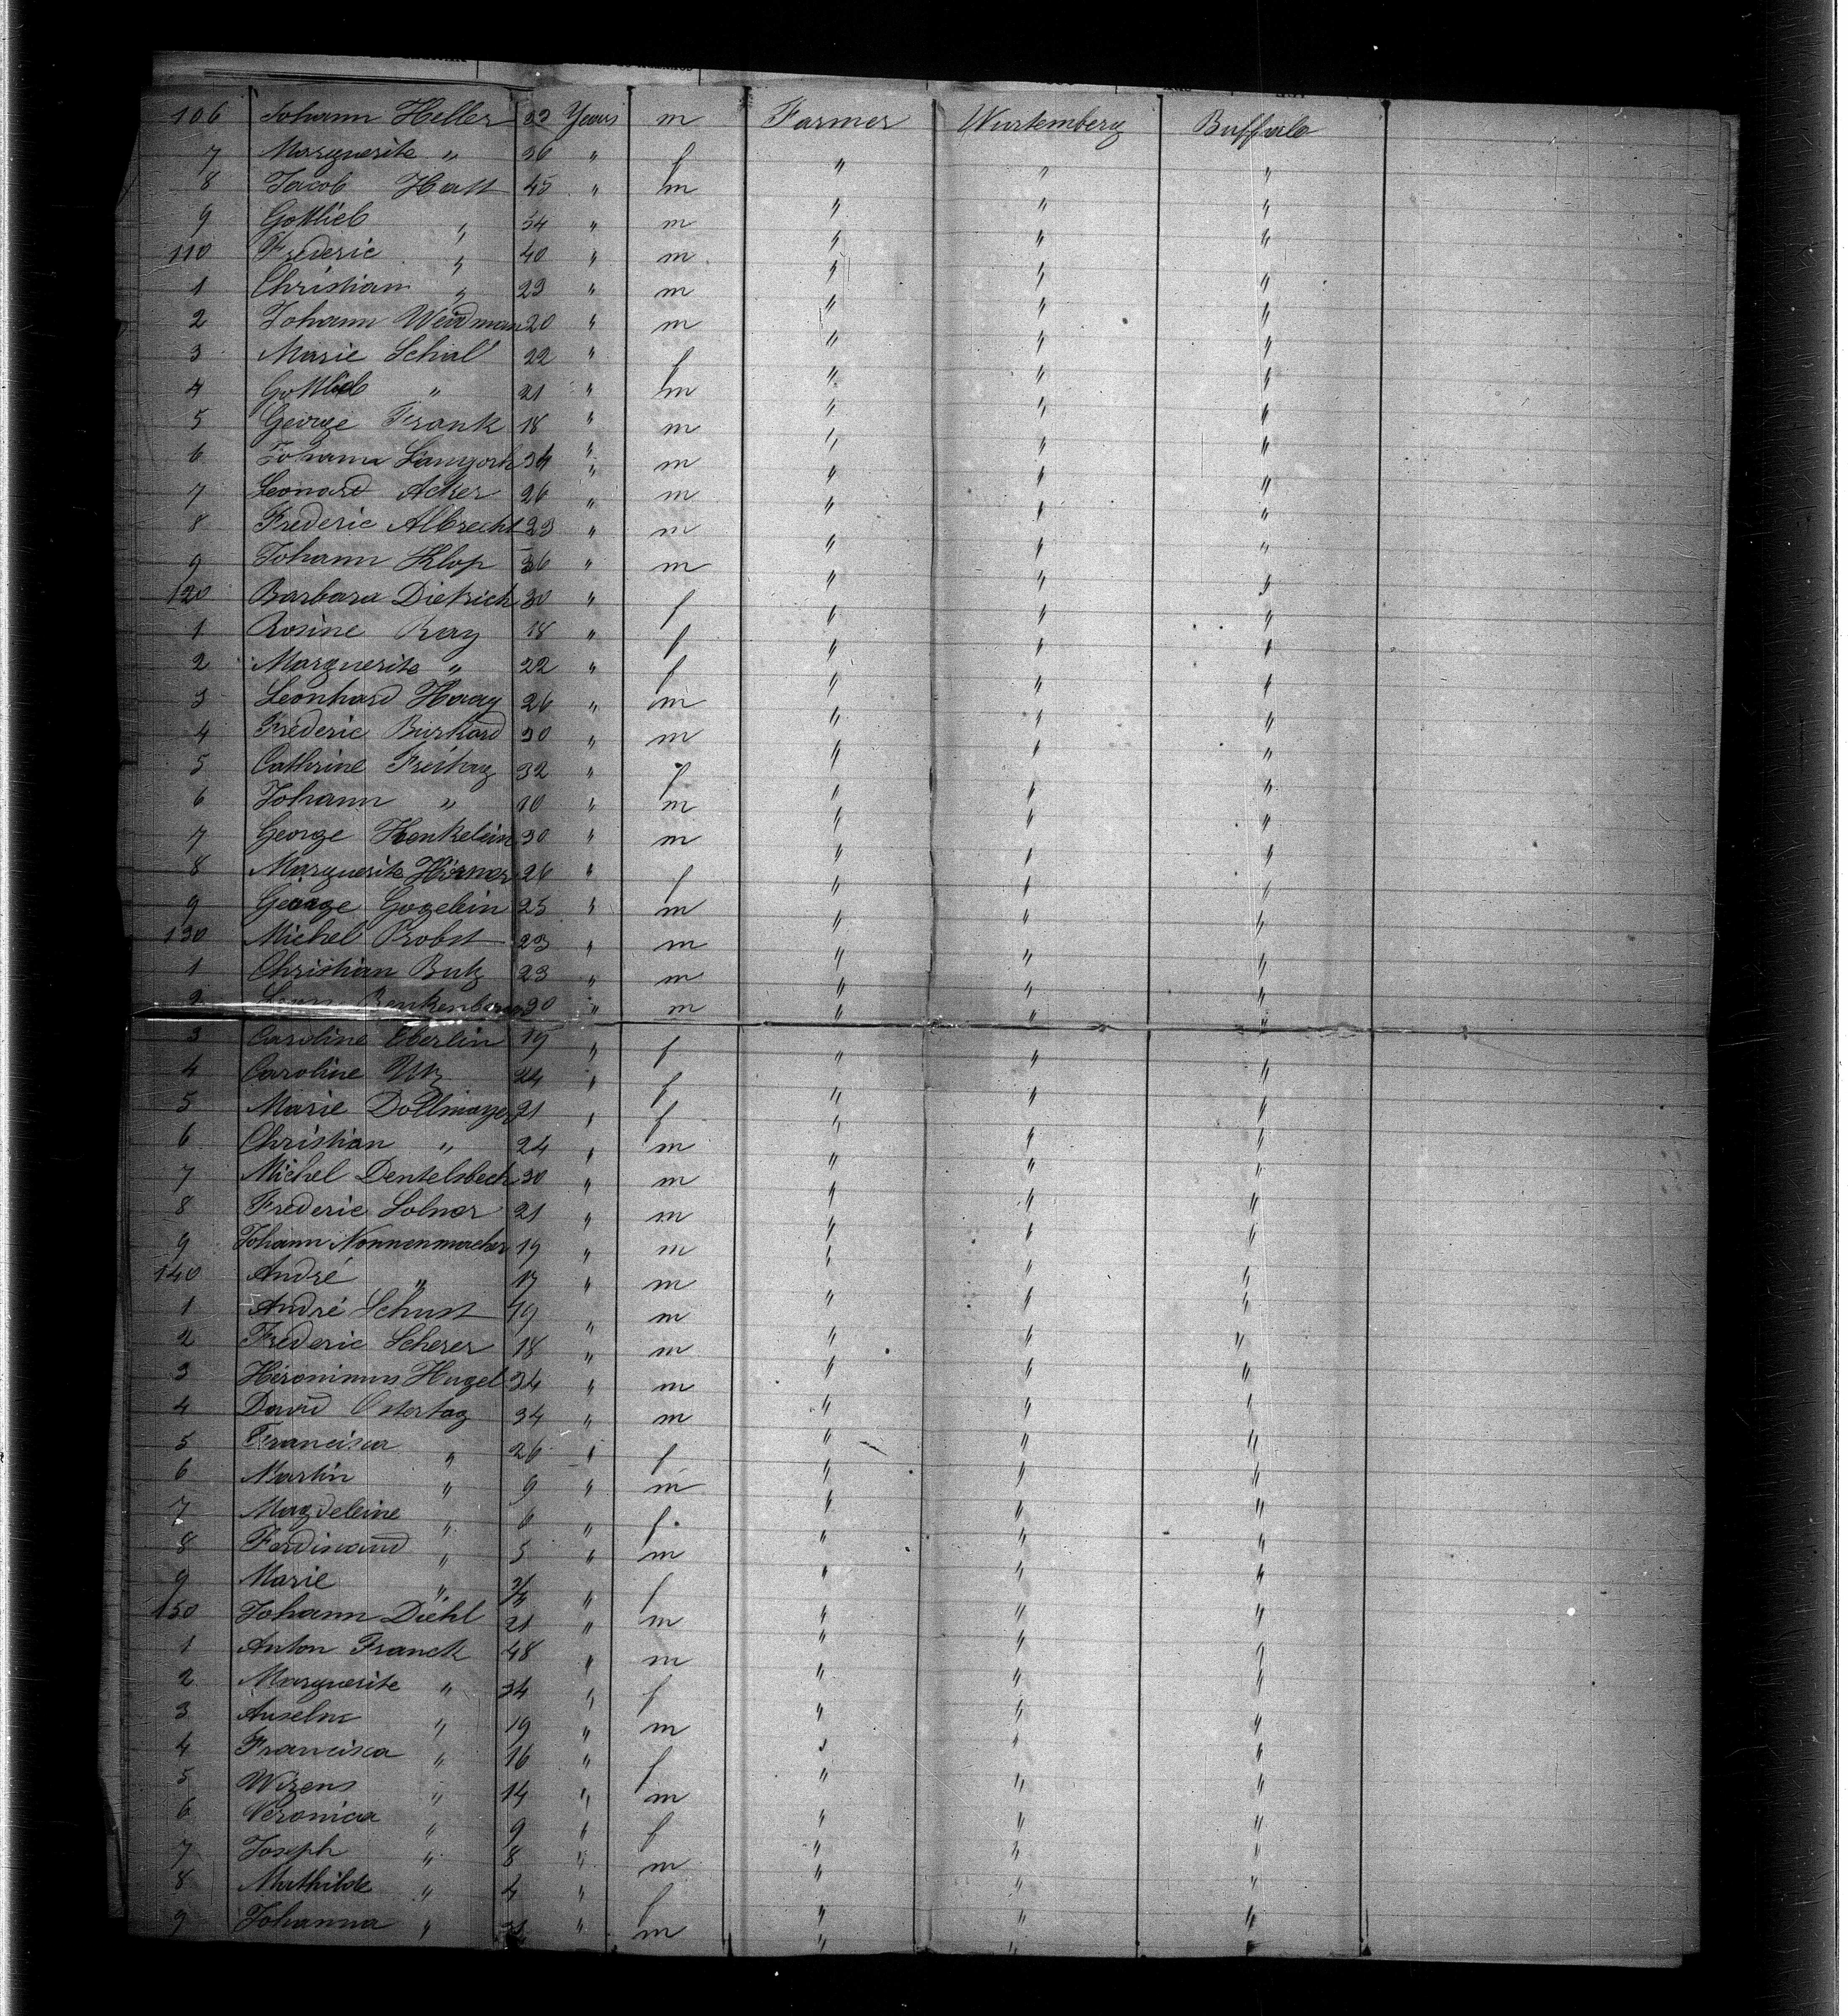 106 Johann Heller 22 Years m Farmer Wurtemberg Buffalo
7 Marguerite " 36 " f " " "
8 Jacob Hatt 45 " m " " "
9 Gottlieb " 34 " m " " "
110 Frederic " 40 " m " " "
1 Christian " 23 " m " " "
2 Johann Weidman 20 " m " " "
3 Marie Schal 22 " f " " "
4 Gottlieb " 21 " m " " "
5 George Frank 18 " m " " "
6 Johann 34 " m " " "
7 Leonard Acker 26 " m " " "
8 Frederic Albrecht 23 " m " " "
9 Johann Klop 36 " m " " "
120 Barbara Dietrich 30 " f " " "
1 Rosine Ray 18 " f " " "
2 Marguerite " 22 " f " " "
3 Leonhard Haag 26 " m " " "
4 Frederic Burkard 30 " m " " "
5 Cathrine Freitag 32 " f " " "
6 Johann " 10 " m " " "
7 George Henkelein 30 " m " " "
8 Marguerite Hörner 26 " f " " "
9 George Gogelein 25 " m " " "
130 Michel Probst 23 " m " " "
1 Christian Butz 23 " m " " "
2 30 " m " " "
3 Caroline Eberlin 19 " f " " "
4 Caroline Utz 24 " f " " "
5 Marie Dollmayer 21 " f " " "
6 Christian " 24 " m " " "
7 Michel Dentelsbech 30 " m " " "
8 Frederic Solner 21 " m " " "
9 Johann Nonnenmacher 19 " m " " "
140 André " 17 " m " " "
1 André Schust 19 " m " " "
2 Frederic Scherer 18 " m " " "
3 Hieronimus Hugel 34 " m " " "
4 David Ostertag 34 " m " " "
5 Francisca " 26 " f " " "
6 Martin " 9 " m " " "
7 Magdeleine " 6 " f " " "
8 Ferdinand " 5 " m " " "
9 Marie " " f " " "
150 Johann Diehl 21 " m " " "
1 Anton Franck 48 " m " " "
2 Marguerite " 34 " f " " "
3 Anselm " 19 " m " " "
4 Francisca " 16 " f " " "
5 Wizens " 14 " m " " "
6 Veronica " 9 " f " " "
7 Joseph " 8 " m " " "
8 Mathilde " 4 " f " " "
9 Johanna " " m " " "